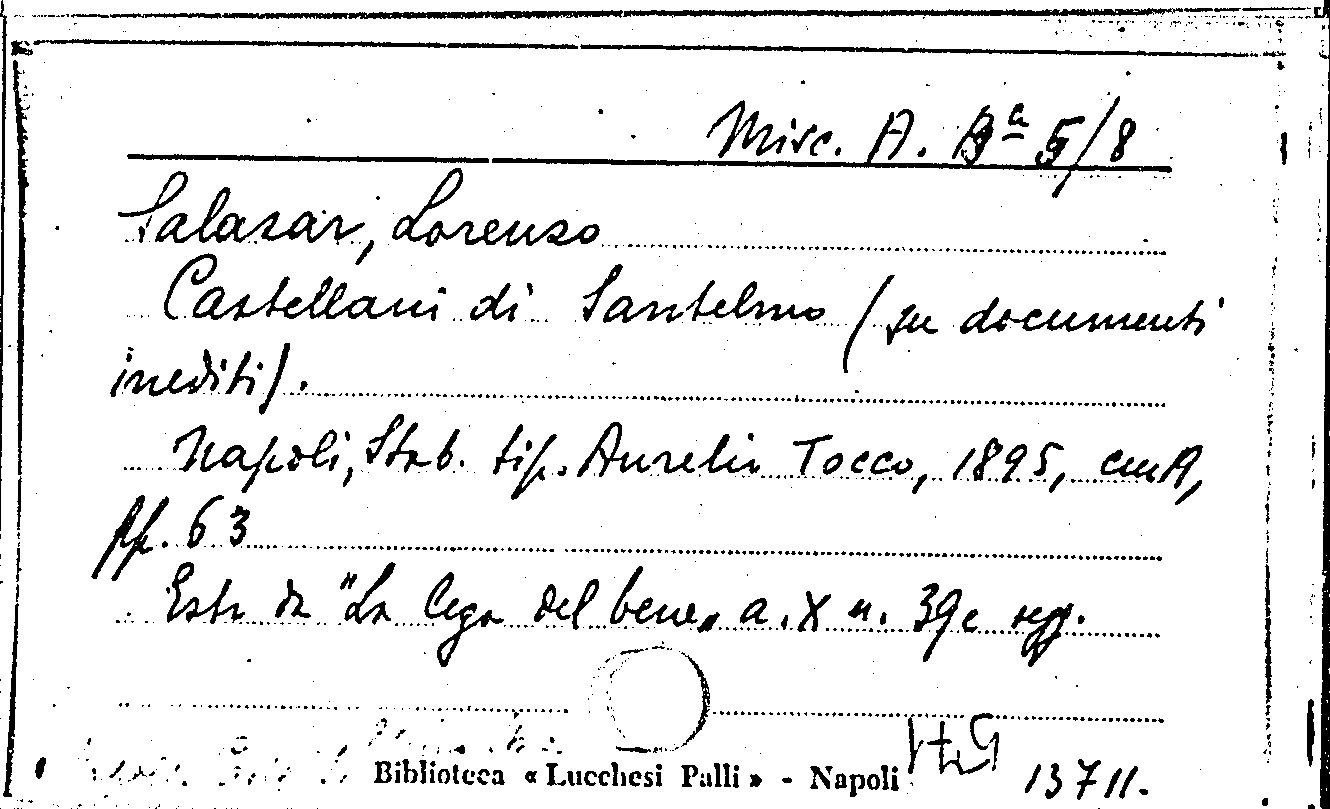 Misc. A. Bª 5/8
Salazar, Lorenzo
Castellani di Santelmo (su documenti
inediti).
Napoli, Stab. tip. Aurelio Tocco, 1895, cm A,
pp. 63
Estr. da "La lega del bene" a. X n. 39 e segg.
Biblioteca « Lucchesi Palli » - Napoli
13711.